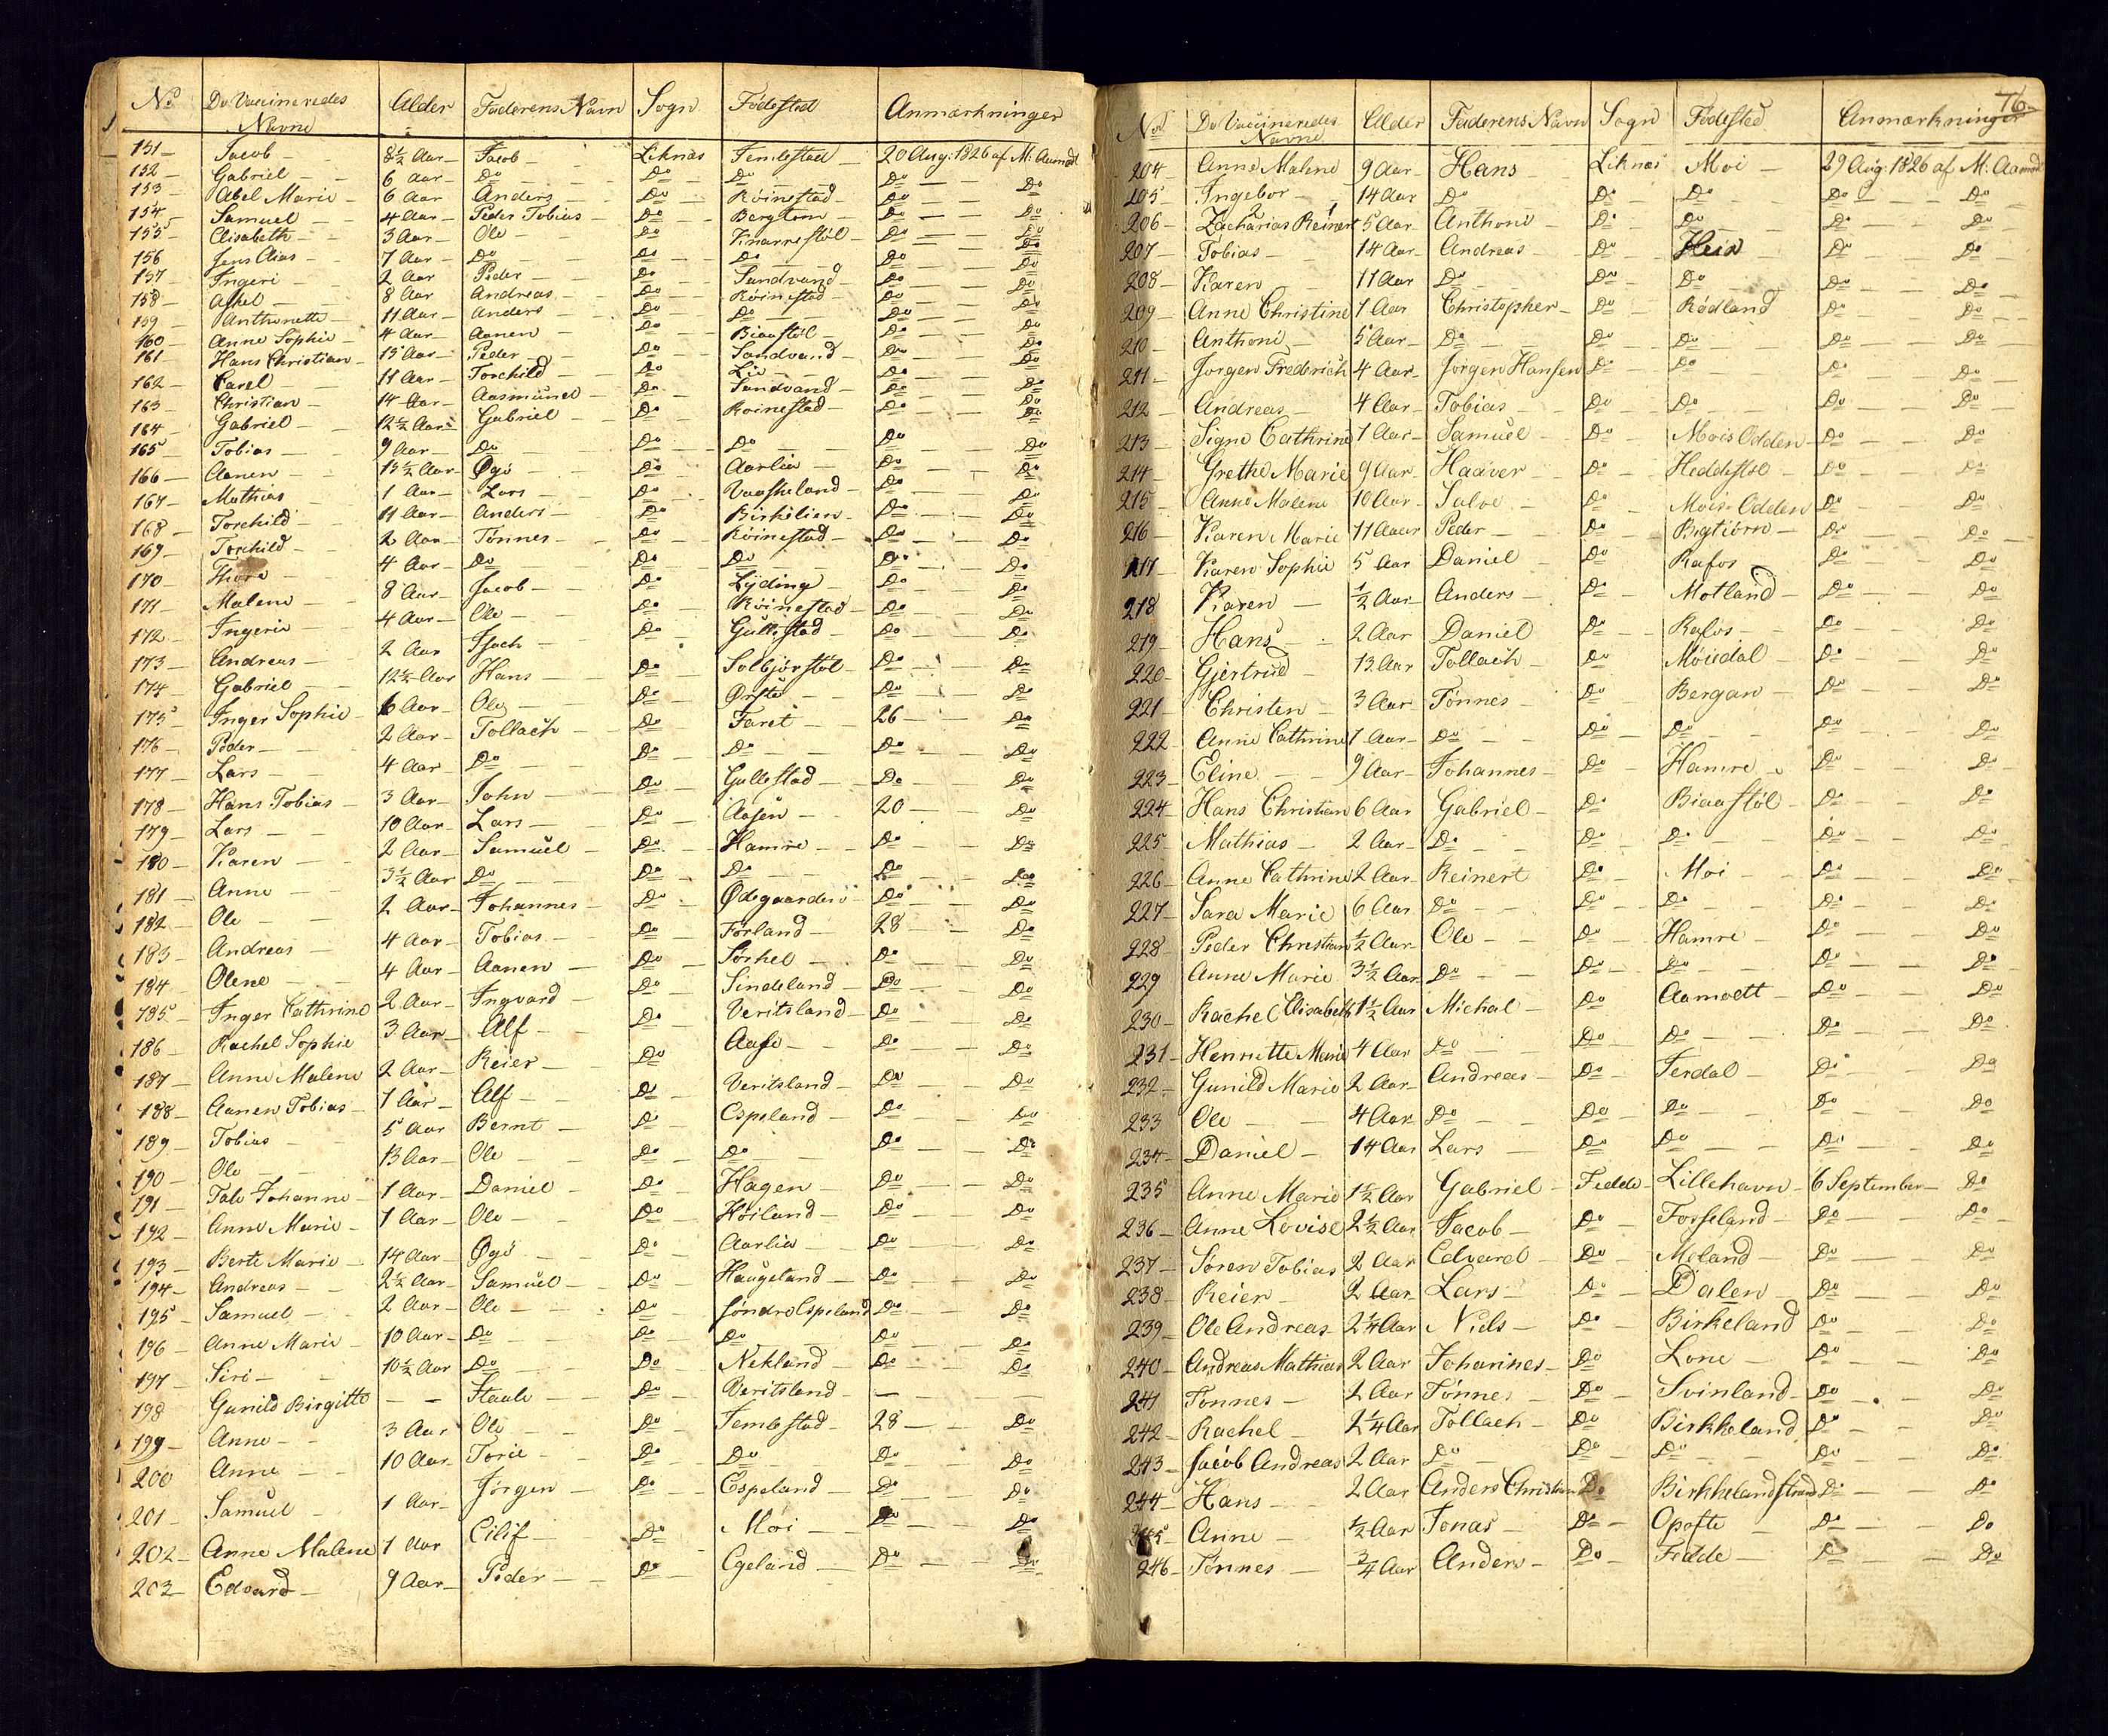 No De Vaccineredes Navne Alder Faderens Navn Sogn Fødestad Anmærkninger
151 Jacob 8½ Aar Jacob Liknæs Femestad 20 Aug: 1826 af M: Aamodt
152 Gabriel 6 Aar Do Do Do Do Do
153 Abel Marie 6 Aar Anders Do Røinestad Do Do
154 Samuel 4 Aar Peder Tobias Do Do Do
155 Elisabeth 3 Aar Ole Do Knarrestöl Do Do
156 Jens Elias 7 Aar Do Do Do Do Do
157 Ingeri 2 Aar Peder Do Sandvand Do Do
158 Askel 8 Aar Andreas Do Röinestad Do Do
159 Anthonette 11 Aar Anders Do Do Do Do
160 Anne Sophie 4 Aar Aanen Do Biaastöl Do Do
161 Hans Christian 13 Aar Peder Do Sandvand Do Do
162 Carel 11 Aar Torchild Do Lie Do Do
163 Christian 14 Aar Aasmund Do Sandvand Do Do
164 Gabriel 12½ Aar Gabriel Do Roinestad Do Do
165 Tobias 9 Aar Do Do Do Do Do
166 Aanen 13½ Aar Øgö Do Aarlia Do Do
167 Mathias 1 Aar Lars Do Vaasheland Do Do
168 Torchild 11 Aar Anders Do Birkelien Do Do
169 Torchild 2 Aar Tönnes Do Röinestad Do Do
170 Thore 4 Aar Do Do Do Do Do
171 Malene 8 Aar Jacob Do Lyding Do Do
172 Ingerie 4 Aar Ole Do Röinestad Do Do
173 Andreas 2 Aar Isach Do Gullestad Do Do
174 Gabriel 12½ Aar Hans Do Solbjörstöl Do Do
175 Inger Sophie 6 Aar Ole Do Ørstö Do Do
176 Peder 2 Aar Tollach Do Faret 26 Do
177 Lars 4 Aar Do Do Do Do Do
178 Hans Tobias 3 Aar John Do Gullestad Do Do
179 Lars 10 Aar Lars Do Aasen 20 Do
180 Karen 2 Aar Samuel Do Hamre Do Do
181 Anne 3½ Aar Do Do Do Do Do
182 Ole 2 Aar Johannes Do Ødegaarden Do Do
183 Andreas 4 Aar Tobias Do Förland 28 Do
184 Olene 4 Aar Aanen Do Sörhel Do Do
185 Inger Cathrine 2 Aar Ingvard Do Sindeland Do Do
186 Rachel Sophie 3 Aar Alf Do Veritsland Do Do
187 Anne Malene 2 Aar Reier Do Aase Do Do
188 Aanen Tobias 1 Aar Alf Do Veritsland Do Do
189 Tobias 5 Aar Bernt Do Espeland Do Do
190 Ole 13 Aar Ole Do Do Do Do
191 Tale Johanne 1 Aar Daniel Do Hagen Do Do
192 Anne Marie 1 Aar Ole Do Höiland Do Do
193 Berte Marie 14 Aar Øgö Do Aarlia Do Do
194 Andreas 2½ Aar Samuel Do Haugeland Do Do
195 Samuel 2 Aar Ole Do Söndre Espeland Do Do
196 Anne Marie 10 Aar Do Do Do Do Do
197 Siri 10½ Aar Do Do Nekland Do Do
198 Gunild Birgitte – – Staale Do Veritsland –
199 Anne 3 Aar Ole Do Femestad 28 Do
200 Anne 10 Aar Torie Do Do Do Do
201 Samuel 1 Aar Jörgen Do Espeland Do Do
202 Anne Malene 1 Aar Eilif Do Moi Do Do
203 Edvard 9 Aar Peder Do Egeland Do Do
76
No De Vaccineredes Navne Alder Faderens Navn Sogn Fødested Anmærkninger
204 Anne Malene 9 Aar Hans Liknæs Moi 29 Aug: 1826 af M: Aamodt
205 Ingebor 14 Aar Do Do Do Do Do
206 Zacharias Reinert 5 Aar Anthoni Do Do Do Do
207 Tobias 14 Aar Andreas Do Do Do
208 Karen 11 Aar Do Do Do Do Do
209 Anne Christine 1 Aar Christopher Do Rødland Do Do
210 Anthoni 5 Aar Do Do Do Do Do
211 Jorgen Frederich 4 Aar Jorgen Hansen Do Do Do Do
212 Andreas 4 Aar Tobias Do Do Do Do
213 Signe Cathrine 1 Aar Samuel Do Mois Odden Do Do
214 Grethe Marie 9 Aar Haaver Do Do Do
215 Anne Malene 10 Aar Salve Do Mois Odden Do Do
216 Karen Marie 11 Aar Peder Do Bigtiörn Do Do
217 Karen Sophie 5 Aar Daniel Do Rafos Do Do
218 Karen ½ Aar Anders Do Motland Do Do
219 Hans 2 Aar Daniel Do Rafos Do Do
220 Gjertrud 13 Aar Tollach Do Möiedal Do Do
221 Christen 3 Aar Tønnes Do Bergan Do Do
222 Anne Cathrine 1 Aar Do Do Do Do Do
223 Eline 9 Aar Johannes Do Hamre Do Do
224 Hans Christian 6 Aar Gabriel Do Biaastöl Do Do
225 Mathias 2 Aar Do Do Do Do Do
226 Anne Cathrine 2 Aar Reinert Do Moi Do Do
227 Sara Marie 6 Aar Do Do Do Do Do
228 Peder Christian ½ Aar Ole Do Hamre Do Do
229 Anne Marie 3½ Aar Do Do Do Do Do
230 Rachel Elisabeth 1½ Aar Michal Do Aamodt Do Do
231 Hennette Marie 4 Aar Do Do Do Do Do
232 Gunild Marie 2 Aar Andreas Do Ferdal Do Do
233 Ole 4 Aar Do Do Do Do Do
234 Daniel 14 Aar Lars Do Do Do Do
235 Anne Marie 1½ Aar Gabriel Fedde Lillehavn 6 September Do
236 Anne Lovise 2½ Aar Jacob Do Fosseland Do Do
237 Søren Tobias 2 Aar Edvard Do Meland Do Do
238 Reier 2 Aar Lars Do Dalen Do Do
239 Ole Andreas 2¼ Aar Niels Do Birkeland Do Do
240 Andreas Mathias 2 Aar Johannes Do Lone Do Do
241 Tönnes 2 Aar Tønnes Do Svinland Do Do
242 Rachel 2¼ Aar Tollach Do Birkkeland Do Do
243 Jacob Andreas 2 Aar Do Do Do Do Do
244 Hans 2 Aar Anders Christian Do Birkkelandstrand Do Do
245 Anne ½ Aar Jonas Do Opofte Do Do
246 Tønnes ¾ Aar Anders Do Fedde Do Do